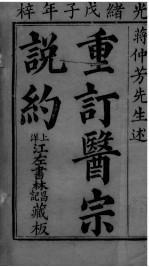 光緒戊子年梓
蔣仲芳先生述
重訂醫宗
說約
上洋江左書林昌記藏板